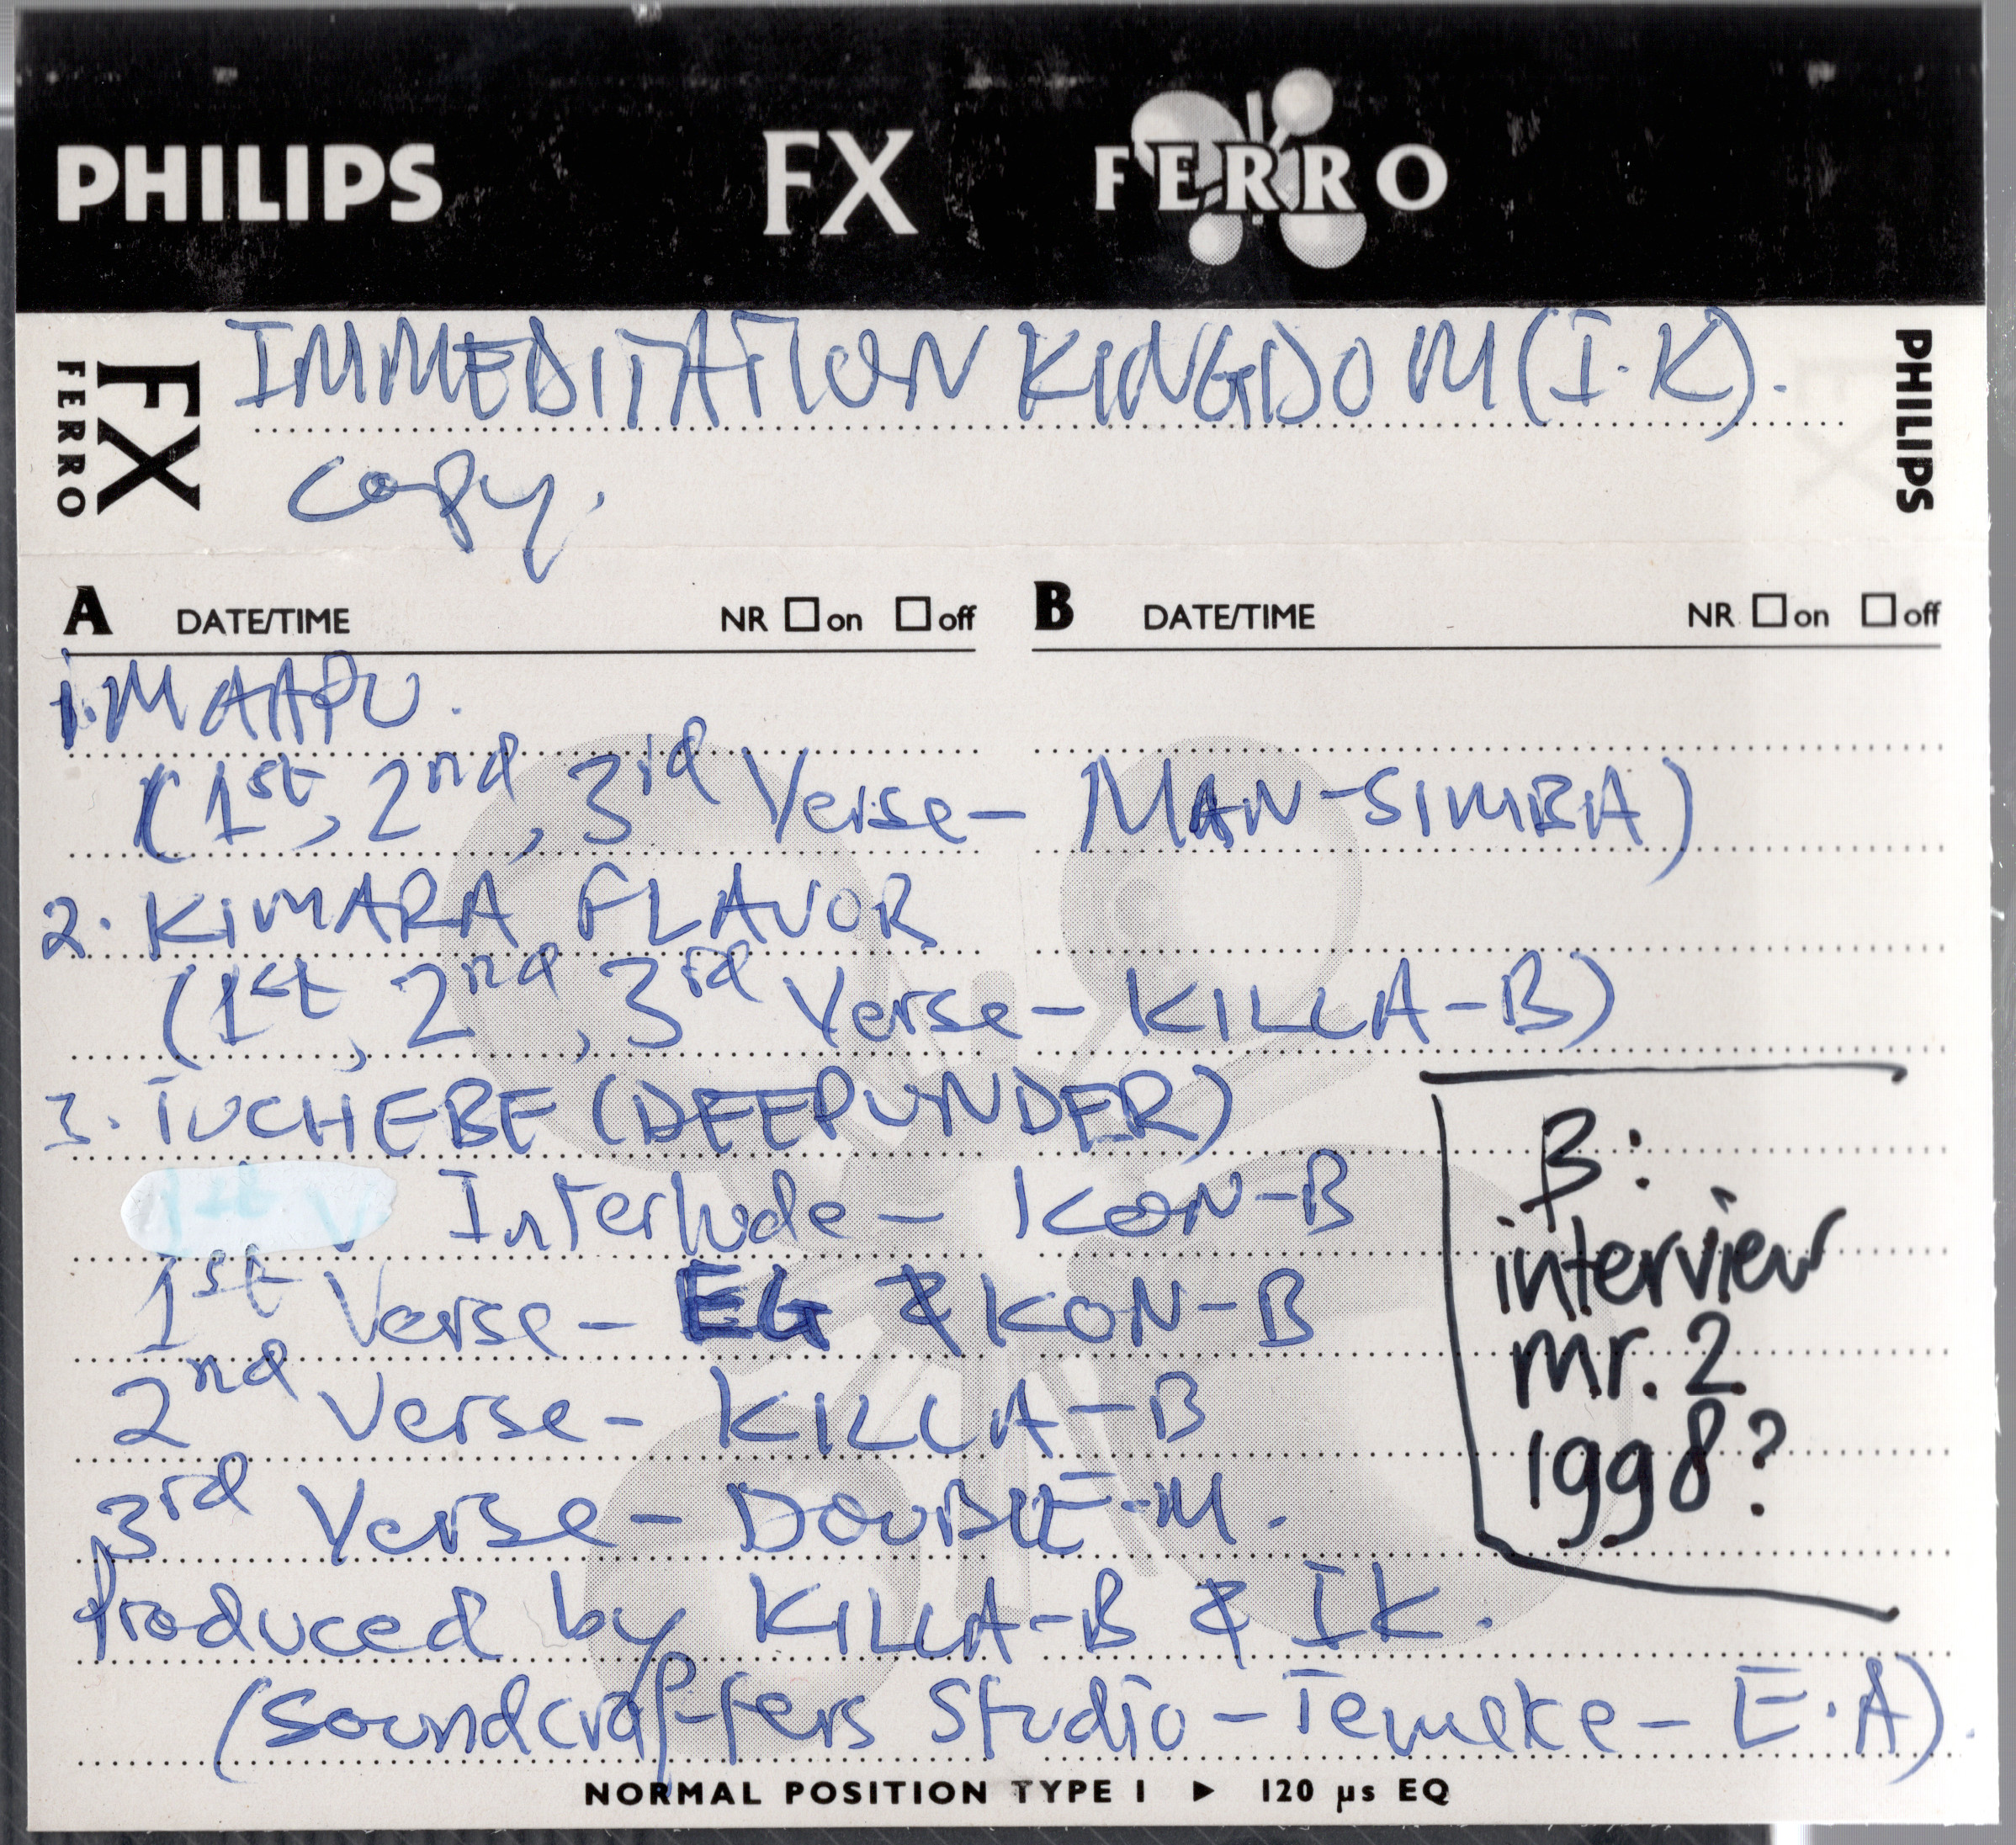 PHILIPS FX FERRO
FX FERRO
IMMEDITATION KINGDOM (I.K).
PHILIPS
copy.
A DATE/TIME NR on off
B DATE/TIME NR on off
1. MAAPU.
(1st, 2nd, 3rd Verse- MAN-SIMBA)
2. KIMARA FLAVOR
(1st, 2nd, 3rd Verse- KILLA-B)
3. TUCHEBE (DEEPUNDER)
1st V Interlude- KON-B
1st Verse- EG & KON-B
2nd Verse- KILLA-B
3rd Verse- DOUBLE-M.
Produced by KILLA-B & IK.
(Soundcrafters Studio-Temeke- E.A).
B:
interview
mr. 2
1998?
NORMAL POSITION TYPE I ▶ 120 µs EQ